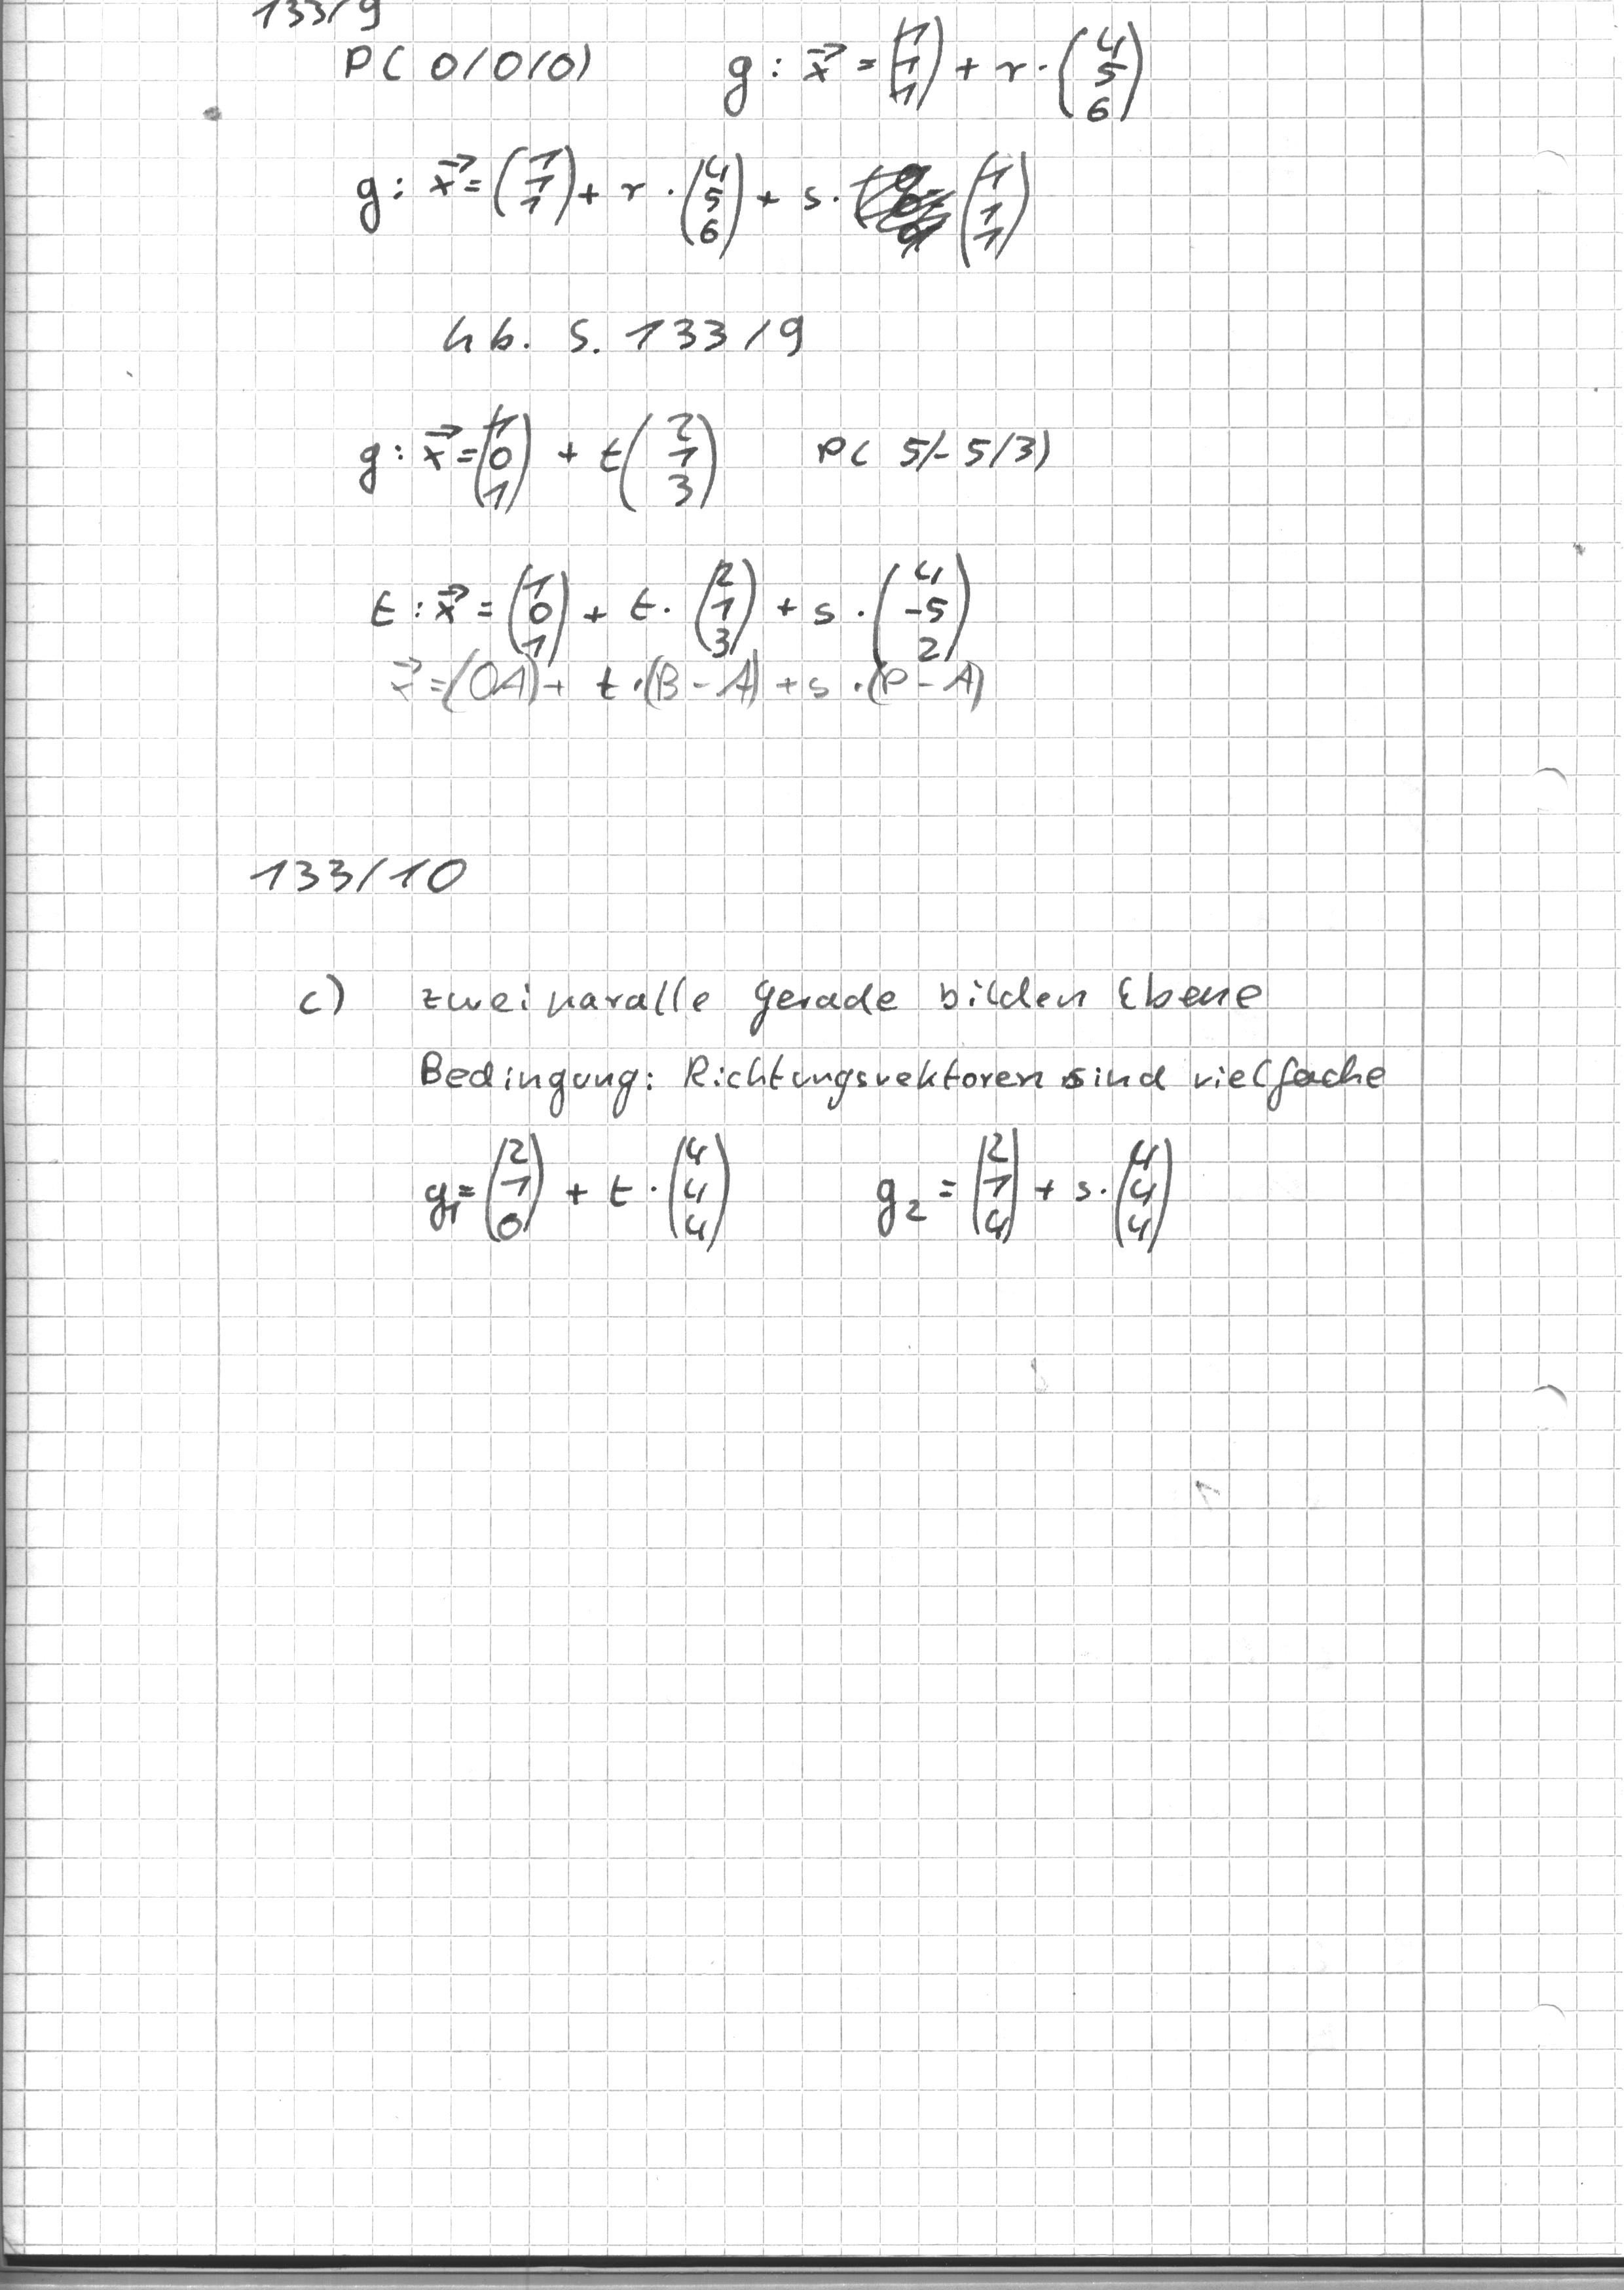 133/9
P( 0/0/0)    g: x⃗ = (1 1 1) + r · (4 5 6)
g: x⃗ = (1 1 1) + r · (4 5 6) + s · (1 1 1)
hb. S. 133/9
g: x⃗ = (1 0 1) + t (2 1 3)    P( 5/-5/3)
E: x⃗ = (1 0 1) + t · (2 1 3) + s · (4 -5 2)
x⃗ = (OA) + t · (B - A) + s · (P - A)
133/10
c) zwei paralle gerade bilden Ebene
Bedingung: Richtungsvektoren sind vielfache
g₁ = (2 1 0) + t · (4 4 4)    g₂ = (2 1 4) + s · (4 4 4)